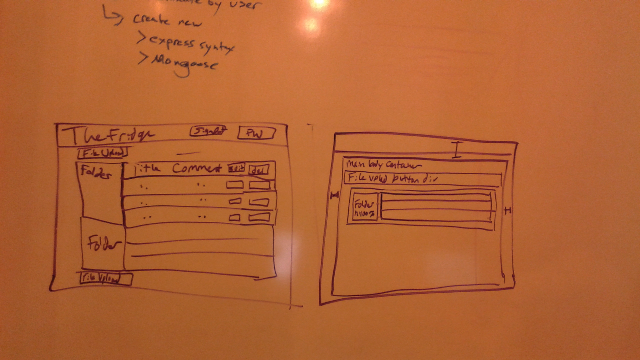 by user
create new
> express syntax
> Mongoose
The Fridge
File Upload
Folder
Title Comment Edit Del
Folder
File Upload
Main body Container
File upload button div
Folder